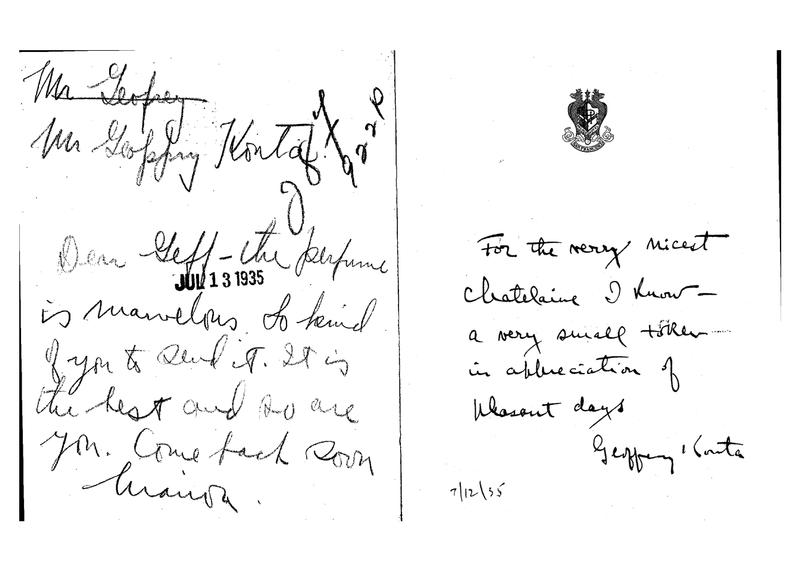 Mr Geofrey
Mr Geoffry Konta
9220
Dear Geff - the perfume
JUL 13 1935
is marvelous so kind
of you to send it. It is
the best and so are
you. Come back soon
Marion.
For the very nicest
Chatelaine I know -
a very small token
in appreciation of
pleasant days
Geoffrey Konta
7/12/35